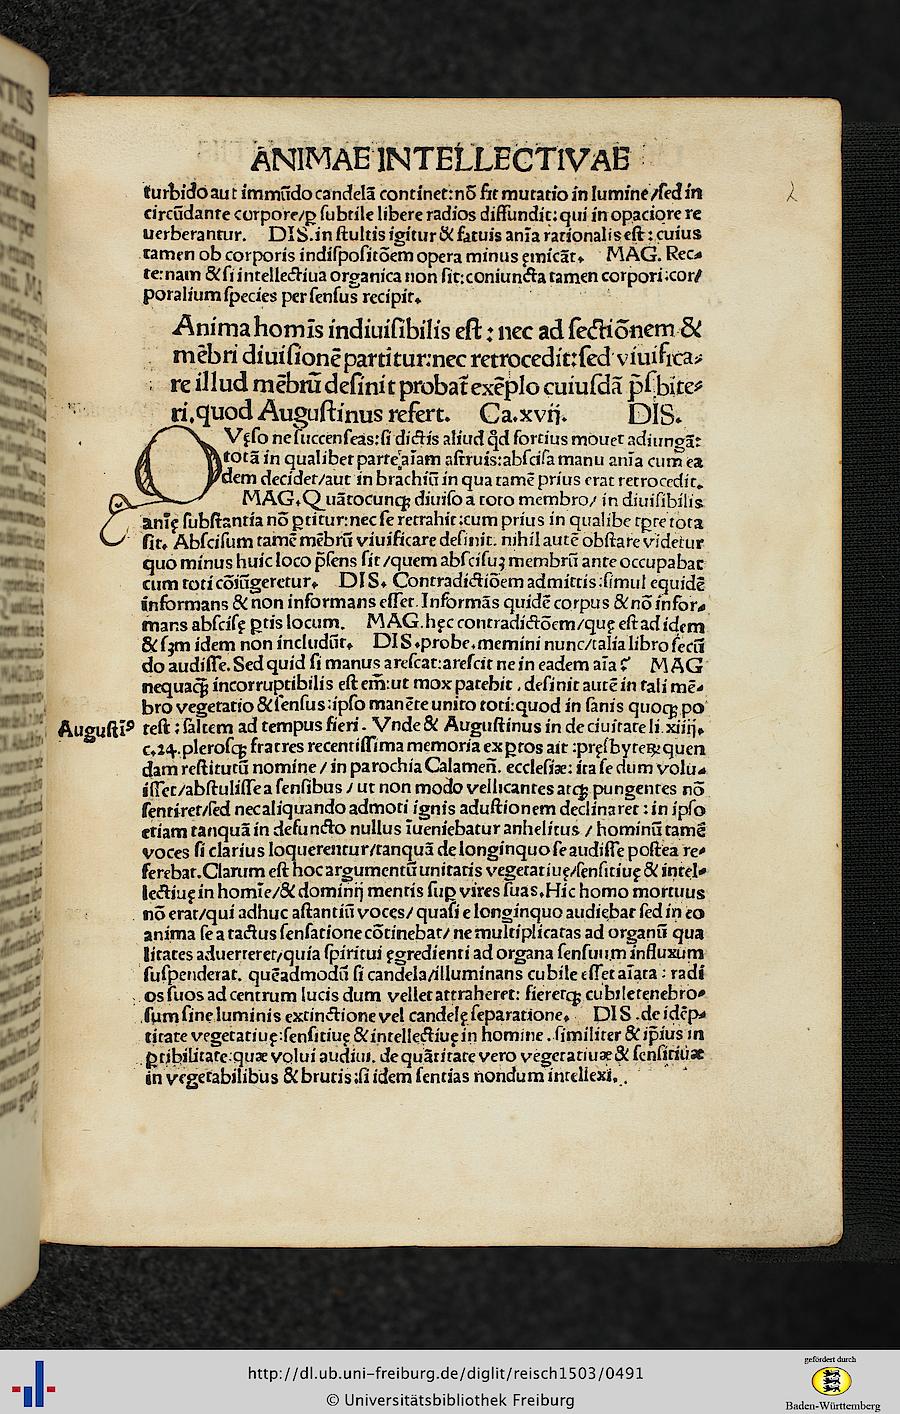 ANIMAE INTELLECTIVAE
turbido aut immūdo candelā continet: nō fit mutatio in lumine/sed in
circūdante corpore/ꝑ subtile libere radios diffundit: qui in opaciore re
uerberantur. DIS. in stultis igitur & fatuis aĩa rationalis est: cuius
tamen ob corporis indispositōem opera minus ęmicāt. MAG. Rec⸗
te: nam & si intellectiua organica non sit: coniuncta tamen corpori: cor/
poralium species per sensus recipit.
Anima homīs indiuisibilis est: nec ad sectiōnem &
mēbri diuisionē partitur: nec retrocedit: sed viuifica⸗
re illud mēbrū desinit probat̄ exēplo cuiusdā p̄sbite⸗
ri, quod Augustinus refert. Ca. xvij. DIS.
QVęso ne succenseas: si dictis aliud qd̄ fortius mouet adiungā:
totā in qualibet parte aīam astruis: abscisa manu aīa cum ea
dem decidet/aut in brachiū in qua tamē prius erat retrocedit.
MAG. Quātocunqꝫ diuiso a toto membro/ in diuisibilis
anię substantia nō ꝑtitur: nec se retrahit: cum prius in qualibet ꝑte tota
sit. Abscisum tamē mēbrū viuificare desinit. nihil autē obstare videtur
quo minus huic loco p̄sens sit/quem abscisuꝫ membrū ante occupabat
cum toti cōiūgeretur. DIS. Contradictiōem admittis: simul equidē
informans & non informans esset. Informās quidē corpus & nō infor⸗
mans abscisę ꝑtis locum. MAG. hęc contradictōem/quę est ad idem
& sꝫm idem non includūt. DIS. probe. memini nunc/talia libro secū
do audisse. Sed quid si manus arescat: arescit ne in eadem aīa? MAG
nequaqꝫ incorruptibilis est em̄: ut mox patebit. desinit autē in tali mē⸗
bro vegetatio & sensus: ipso manēte unito toti: quod in sanis quoqꝫ po
test: saltem ad tempus fieri. Vnde & Augustinus in de ciuitate li. xiiij.
Augustiꝰ
c. 24. plerosqꝫ fratres recentissima memoria exꝑtos ait: pręsbyterꝫ quen
dam restitutū nomine/ in parochia Calamen̄. ecclesiæ: ita se dum volu⸗
isset/abstulisse a sensibus/ ut non modo vellicantes atqꝫ pungentes nō
sentiret/sed nec aliquando admoti ignis adustionem declinaret: in ipso
etiam tanquā in defuncto nullus īueniebatur anhelitus/ hominū tamē
voces si clarius loquerentur/tanquā de longinquo se audisse postea re⸗
ferebat. Clarum est hoc argumentū unitatis vegetatiuę/sensitiuę & intel⸗
lectiuę in homīe/& dominij mentis suꝑ vires suas. Hic homo mortuus
nō erat/qui adhuc astantiū voces/ quasi e longinquo audiebat sed in eo
anima se a tactus sensatione cōtinebat/ ne multiplicatas ad organū qua
litates aduerteret/quia spiritui ęgredienti ad organa sensuum influxum
suspenderat. quēadmodū si candela/illuminans cubile esset aīata: radi
os suos ad centrum lucis dum vellet attraheret: fieretqꝫ cubile tenebro⸗
sum sine luminis extinctione vel candelę separatione. DIS. de idēp⸗
titate vegetatiuę: sensitiuę & intellectiuę in homine. similiter & ip̄ius in
ꝑtibilitate: quæ volui audiui. de quātitate vero vegetatiuæ & sensitiuæ
in vegetabilibus & brutis: si idem sentias nondum intellexi.
http://dl.ub.uni-freiburg.de/diglit/reisch1503/0491
© Universitätsbibliothek Freiburg
gefördert durch
Baden-Württemberg